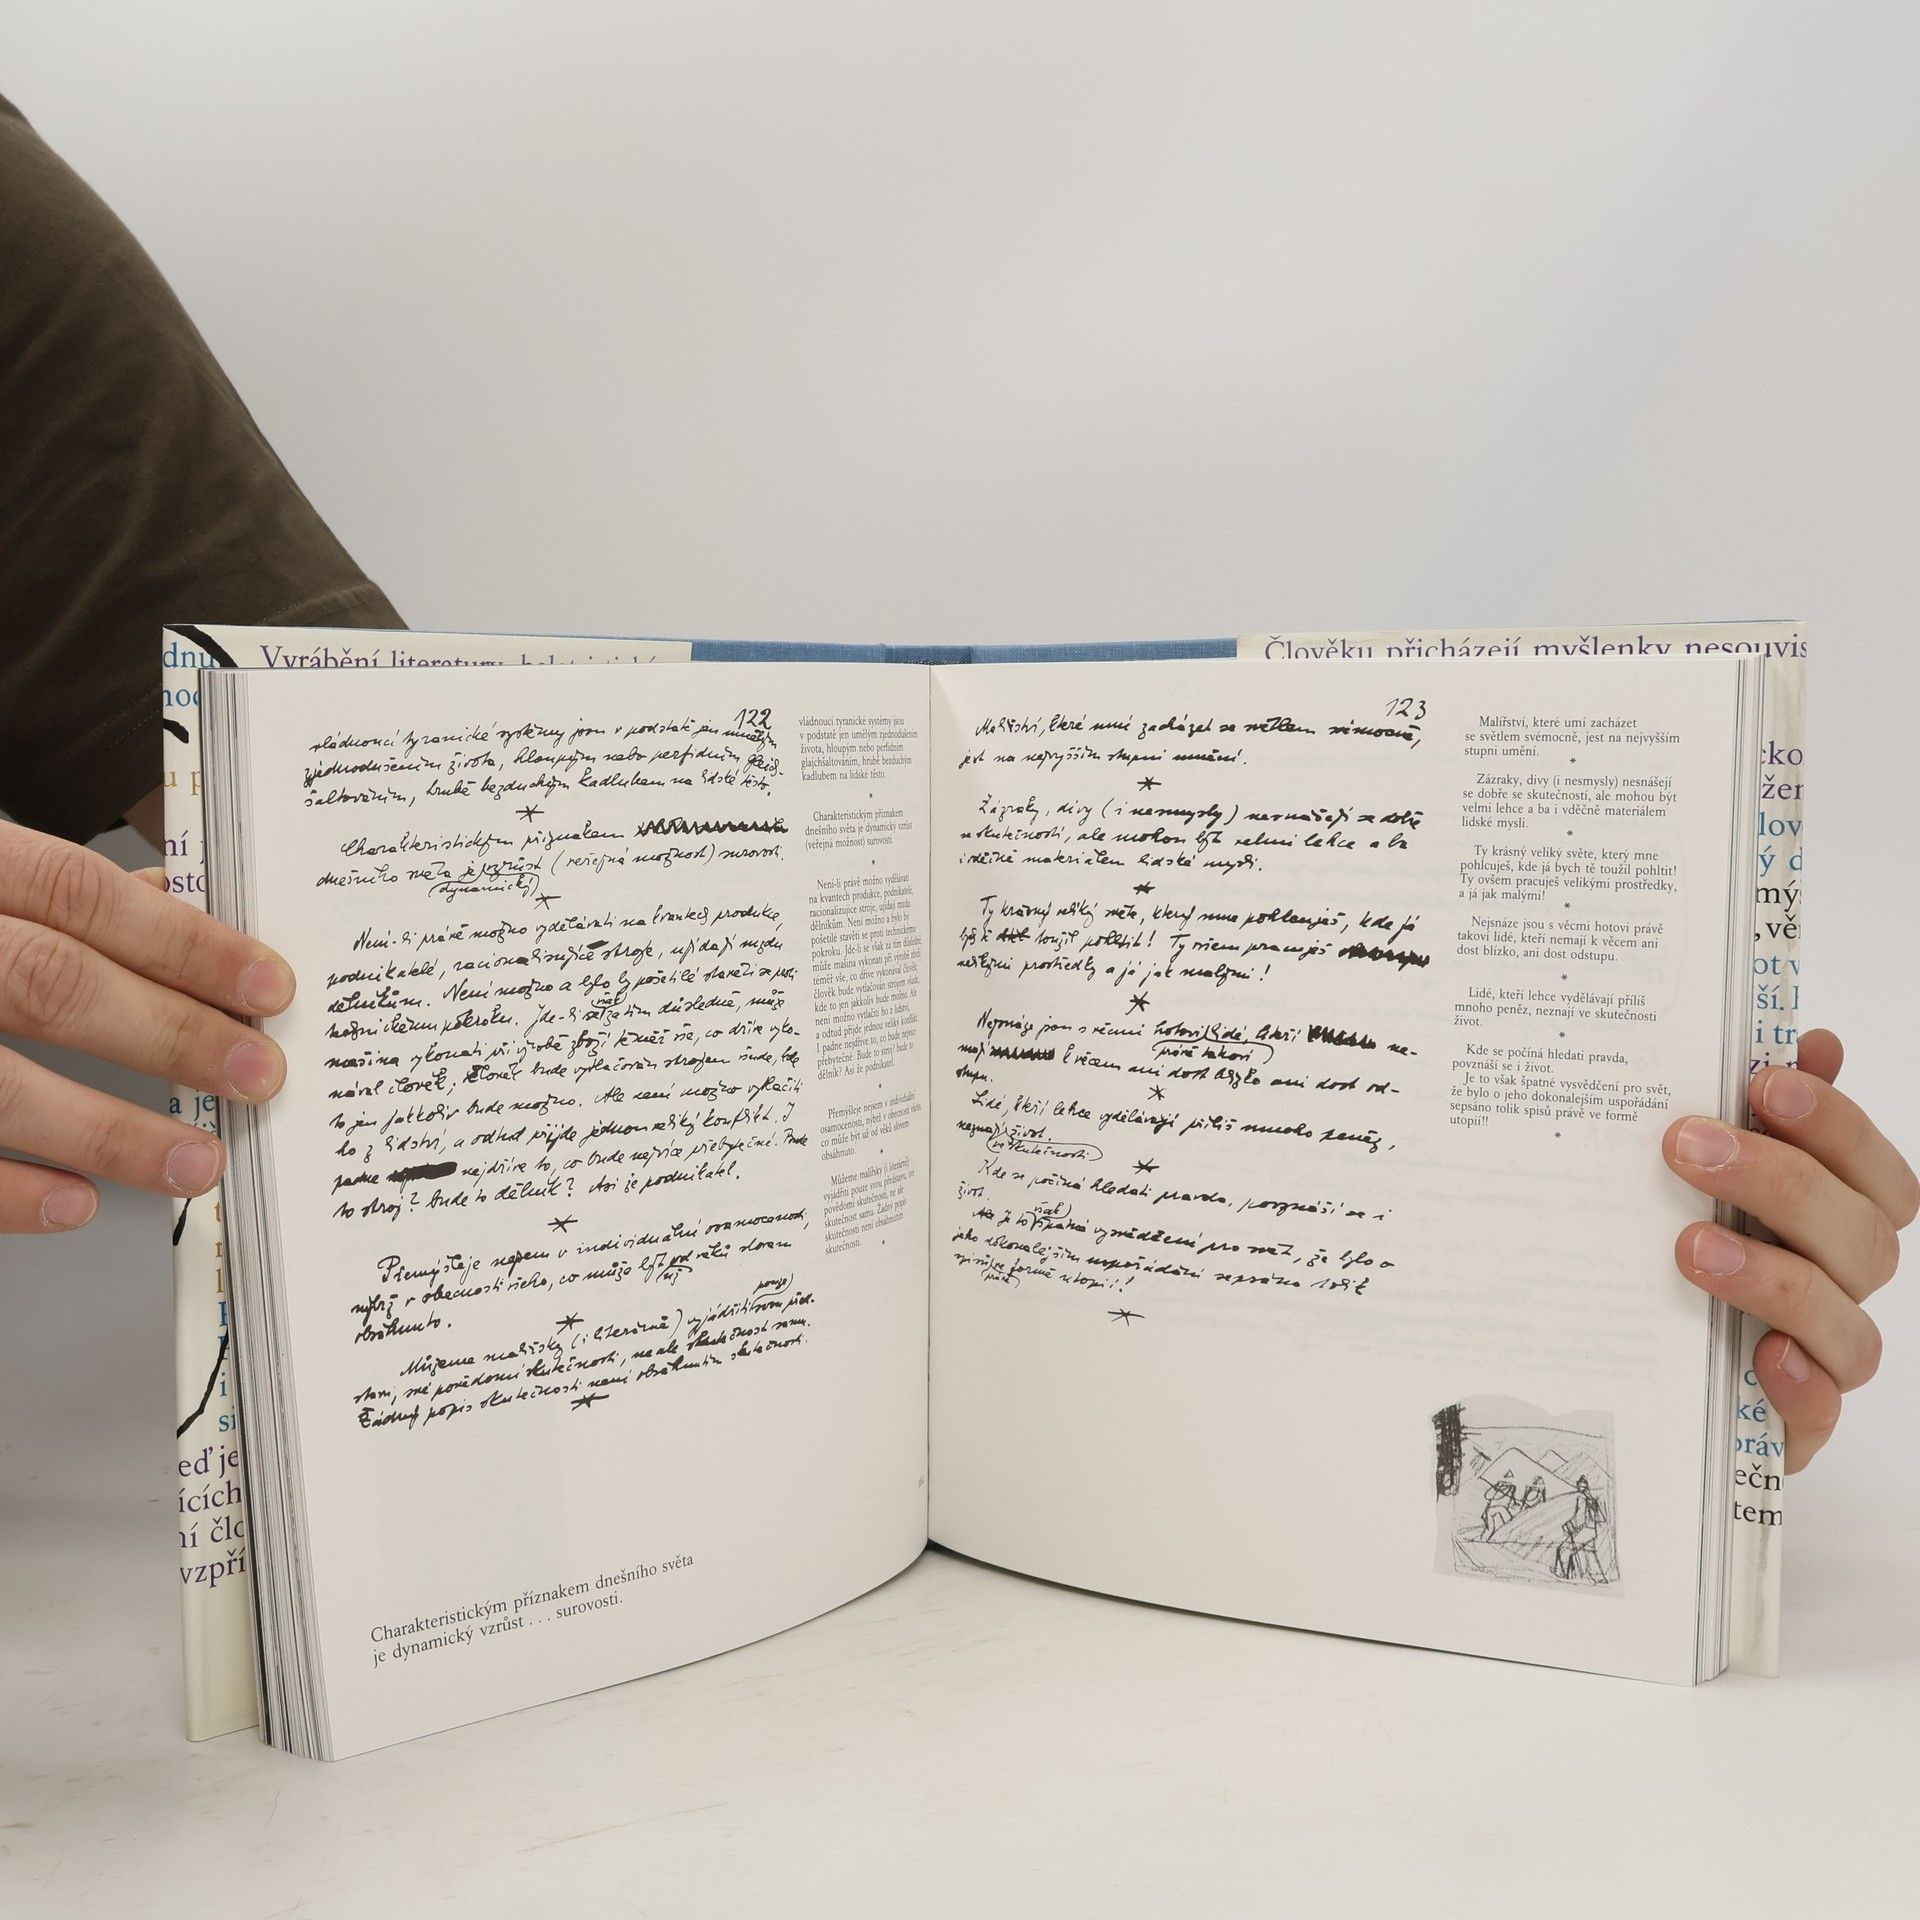 Vyrábění literatury, beletristické
Člověku přicházejí myšlenky nesouvis
dnu
u p
ní
a je
eď je
ících
ní člo
vzpří
122
vládnoucí tyranické systémy jsou v podstatě jen umělým
zjednodušením života, hloupým nebo perfidním glajch-
šaltováním, hrubě bezduchým kadlubem na lidské těsto.
*
Charakteristickým příznakem
dnešního světa je vzrůst (veřejná možnost) surovosti.
dynamický
*
Není-li právě možno vydělávati na kvantech produkce,
podnikatelé, racionalisujíce stroje, ujídají mzdu
dělníkům. Není možno a bylo by pošetilé stavěti se proti
technickému pokroku. Jde-li se však za tím důsledně, může
mašina vykonati při výrobě zboží téměř vše, co dříve vyko-
nával člověk; člověk bude vytlačován strojem všude, kde
to jen jakkoliv bude možno. Ale není možno vytlačiti
ho z lidství, a odtud přijde jednou veliký konflikt. I
padne nejdříve to, co bude nejvíce přebytečné. Bude
to stroj? bude to dělník? Asi že podnikatel.
*
Přemýšleje nejsem v individuální osamocenosti,
nýbrž v obecnosti všeho, co může býti už od věků slovem
obsáhnuto.
*
Můžeme malířsky (i literárně) vyjádřiti pouze svou před-
stavu, své povědomí skutečnosti, ne ale skutečnost samu.
Žádný popis skutečnosti není obsáhnutím skutečnosti.
*
vládnoucí tyranické systémy jsou
v podstatě jen umělým zjednodušením
života, hloupým nebo perfidním
glajchšaltováním, hrubě bezduchým
kadlubem na lidské těsto.
*
Charakteristickým příznakem
dnešního světa je dynamický vzrůst
(veřejná možnost) surovosti.
*
Není-li právě možno vydělávati
na kvantech produkce, podnikatelé,
racionalizujíce stroje, ujídají mzdu
dělníkům. Není možno a bylo by
pošetilé stavěti se proti technickému
pokroku. Jde-li se však za tím důsledně,
může mašina vykonati při výrobě zboží
téměř vše, co dříve vykonával člověk;
člověk bude vytlačován strojem všude,
kde to jen jakkoliv bude možno. Ale
není možno vytlačiti ho z lidství,
a odtud přijde jednou veliký konflikt.
I padne nejdříve to, co bude nejvíce
přebytečné. Bude to stroj? bude to
dělník? Asi že podnikatel.
*
Přemýšleje nejsem v individuální
osamocenosti, nýbrž v obecnosti všeho,
co může být už od věků slovem
obsáhnuto.
*
Můžeme malířsky (i literárně)
vyjádřiti pouze svou představu, své
povědomí skutečnosti, ne ale
skutečnost samu. Žádný popis
skutečnosti není obsáhnutím
skutečnosti.
*
Charakteristickým příznakem dnešního světa
je dynamický vzrůst . . . surovosti.
123
Malířství, které umí zacházet se světlem svémocně,
jest na nejvyšším stupni umění.
*
Zázraky, divy (i nesmysly) nesnášejí se dobře
se skutečností, ale mohou být velmi lehce a ba
i vděčně materiálem lidské mysli.
*
Ty krásný veliký světe, který mne pohlcuješ, kde já
bych tě toužil pohltit! Ty ovšem pracuješ
velikými prostředky a já jak malými!
*
Nejsnáze jsou s věcmi hotovi lidé, kteří ne-
právě takoví
mají k věcem ani dost blízko ani dost od-
stupu.
*
Lidé, kteří lehce vydělávají příliš mnoho peněz,
neznají život.
ve skutečnosti
*
Kde se počíná hledati pravda, povznáší se i
život.
Je to však špatné vysvědčení pro svět, že bylo o
jeho dokonalejším uspořádání sepsáno tolik
spisů ve formě utopií!
právě
*
Malířství, které umí zacházet
se světlem svémocně, jest na nejvyšším
stupni umění.
*
Zázraky, divy (i nesmysly) nesnášejí
se dobře se skutečností, ale mohou být
velmi lehce a ba i vděčně materiálem
lidské mysli.
*
Ty krásný veliký světe, který mne
pohlcuješ, kde já bych tě toužil pohltit!
Ty ovšem pracuješ velikými prostředky,
a já jak malými!
*
Nejsnáze jsou s věcmi hotovi právě
takoví lidé, kteří nemají k věcem ani
dost blízko, ani dost odstupu.
*
Lidé, kteří lehce vydělávají příliš
mnoho peněz, neznají ve skutečnosti
život.
*
Kde se počíná hledati pravda,
povznáší se i život.
Je to však špatné vysvědčení pro svět,
že bylo o jeho dokonalejším uspořádání
sepsáno tolik spisů právě ve formě
utopií!!
*
cko
žen
lov
ý d
mys
, vě
ot v
ší.
i tr
ké
práv
ečn
tem